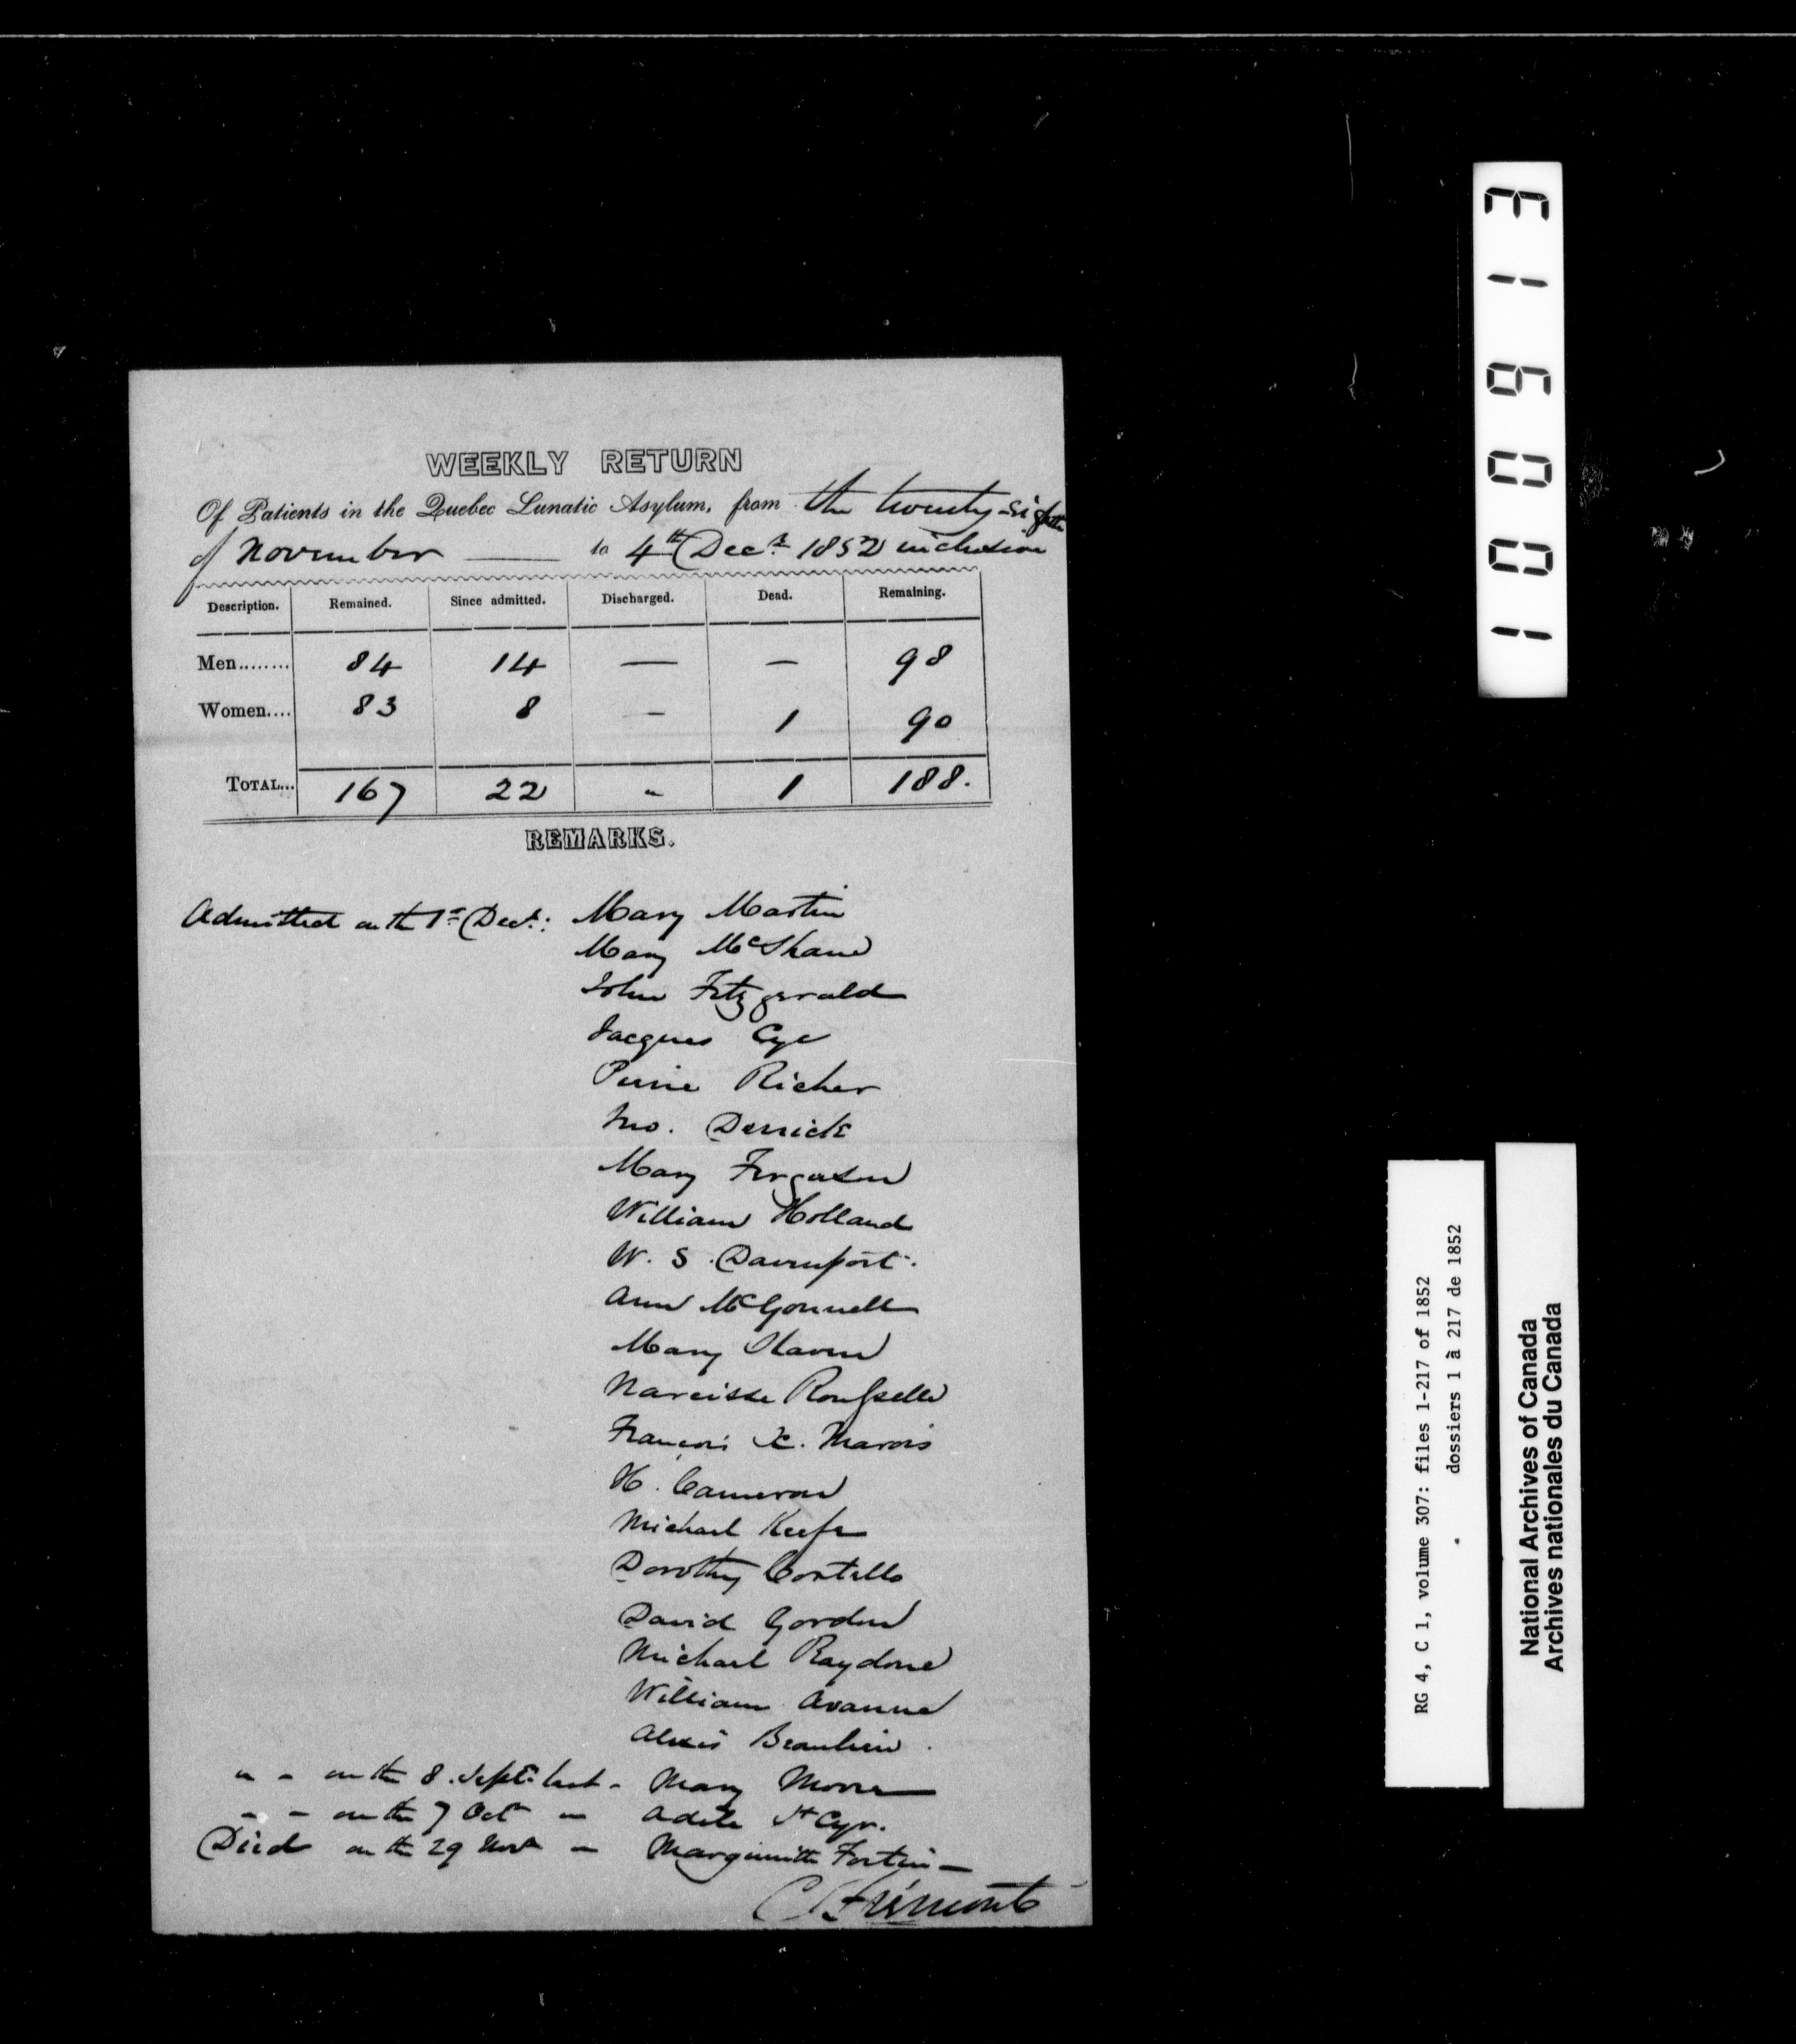 WEEKLY RETURN
Of Patients in the Quebec Lunatic Asylum, from the twenty-eighth
of November —— to 4th Decr. 1852 inclusive
Description. Remained. Since admitted. Discharged. Dead. Remaining.
Men........ 84 14 — — 98
Women.... 83 8 — 1 90
TOTAL... 167 22 " 1 188.
REMARKS.
Admitted on the 1st Decr.: Mary Martin
Mary McShane
John Fitzgerald
Jacques Cyr
Pierre Richer
Jno. Derrick
Mary Ferguson
William Holland
W. S. Davenport.
Ann McGonnell
Mary Slaven
Narcisse Rousselle
François X. Marois
H. Cameron
Michael Keefe
Dorothy Costello
David Gordon
Michael Raydone
William Avanne
Alexis Beaulieu.
" - on the 8. Septr. last - Mary Moore
" - on the 7 Octr " Adele St Cyr.
Died on the 29 Novr — Marguerite Fortin —
C Frémont
100913
RG 4, C 1, volume 307: files 1-217 of 1852
dossiers 1 à 217 de 1852
National Archives of Canada
Archives nationales du Canada